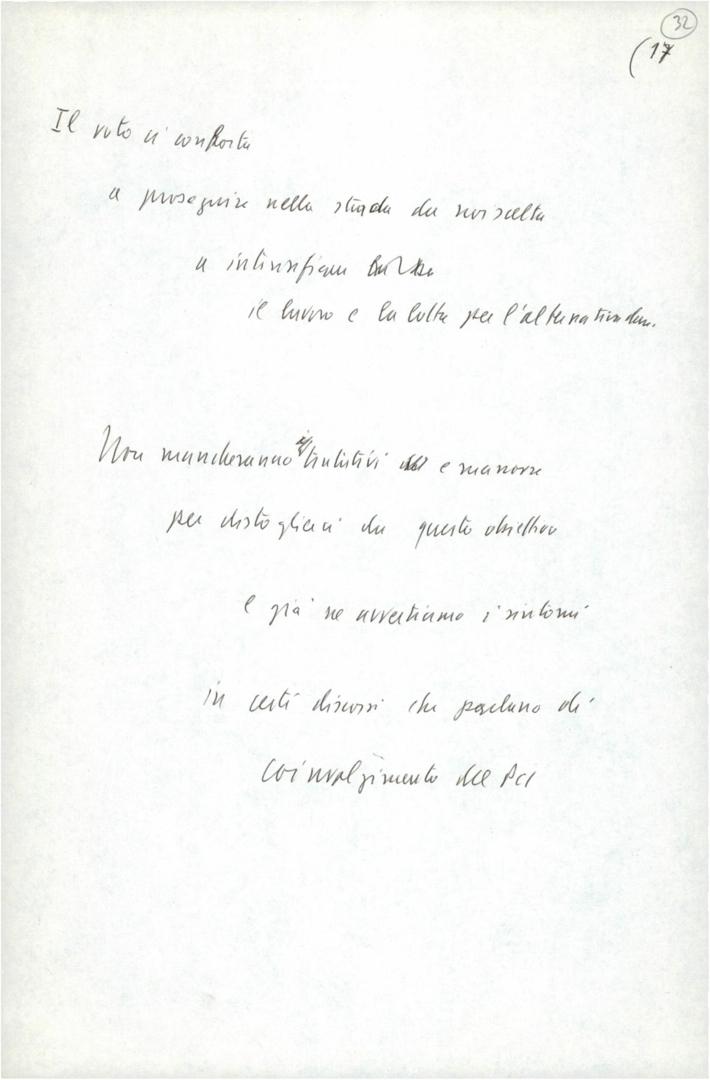 32
(17
Il voto ci conforta
a proseguire nella strada da noi scelta
a intensificare
il lavoro e la lotta per l'alternativa dem.
Non mancheranno i tentativi e manovre
per distoglierci da questo obiettivo
e già ne avvertiamo i sintomi
in certi discorsi che parlano di
coinvolgimento del Pci